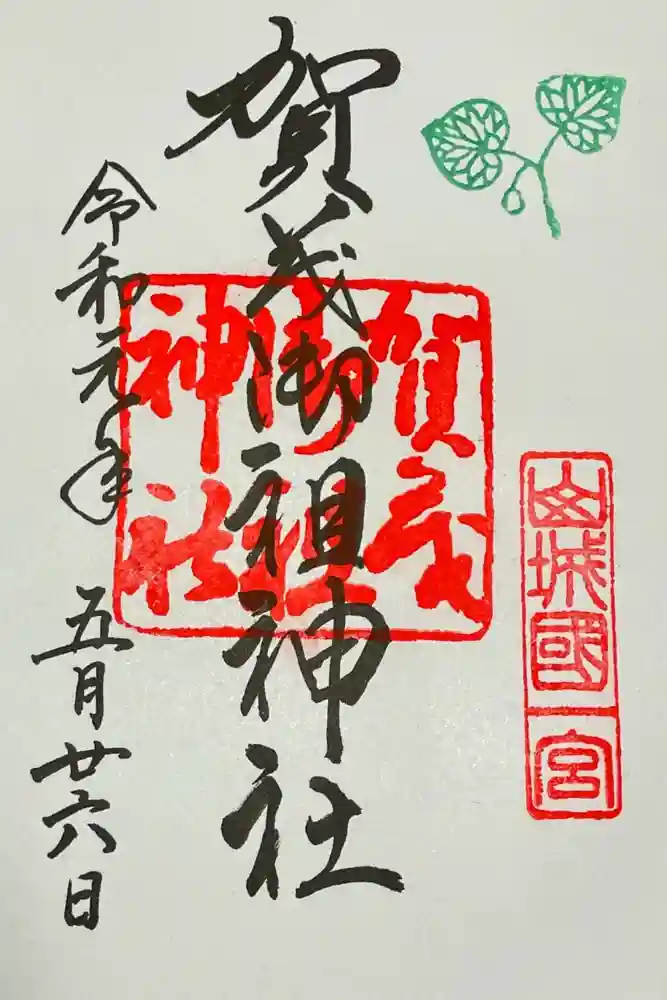 山城國一宮
賀茂御祖神社
賀茂
御祖
神社
令和元年
五月廿六日